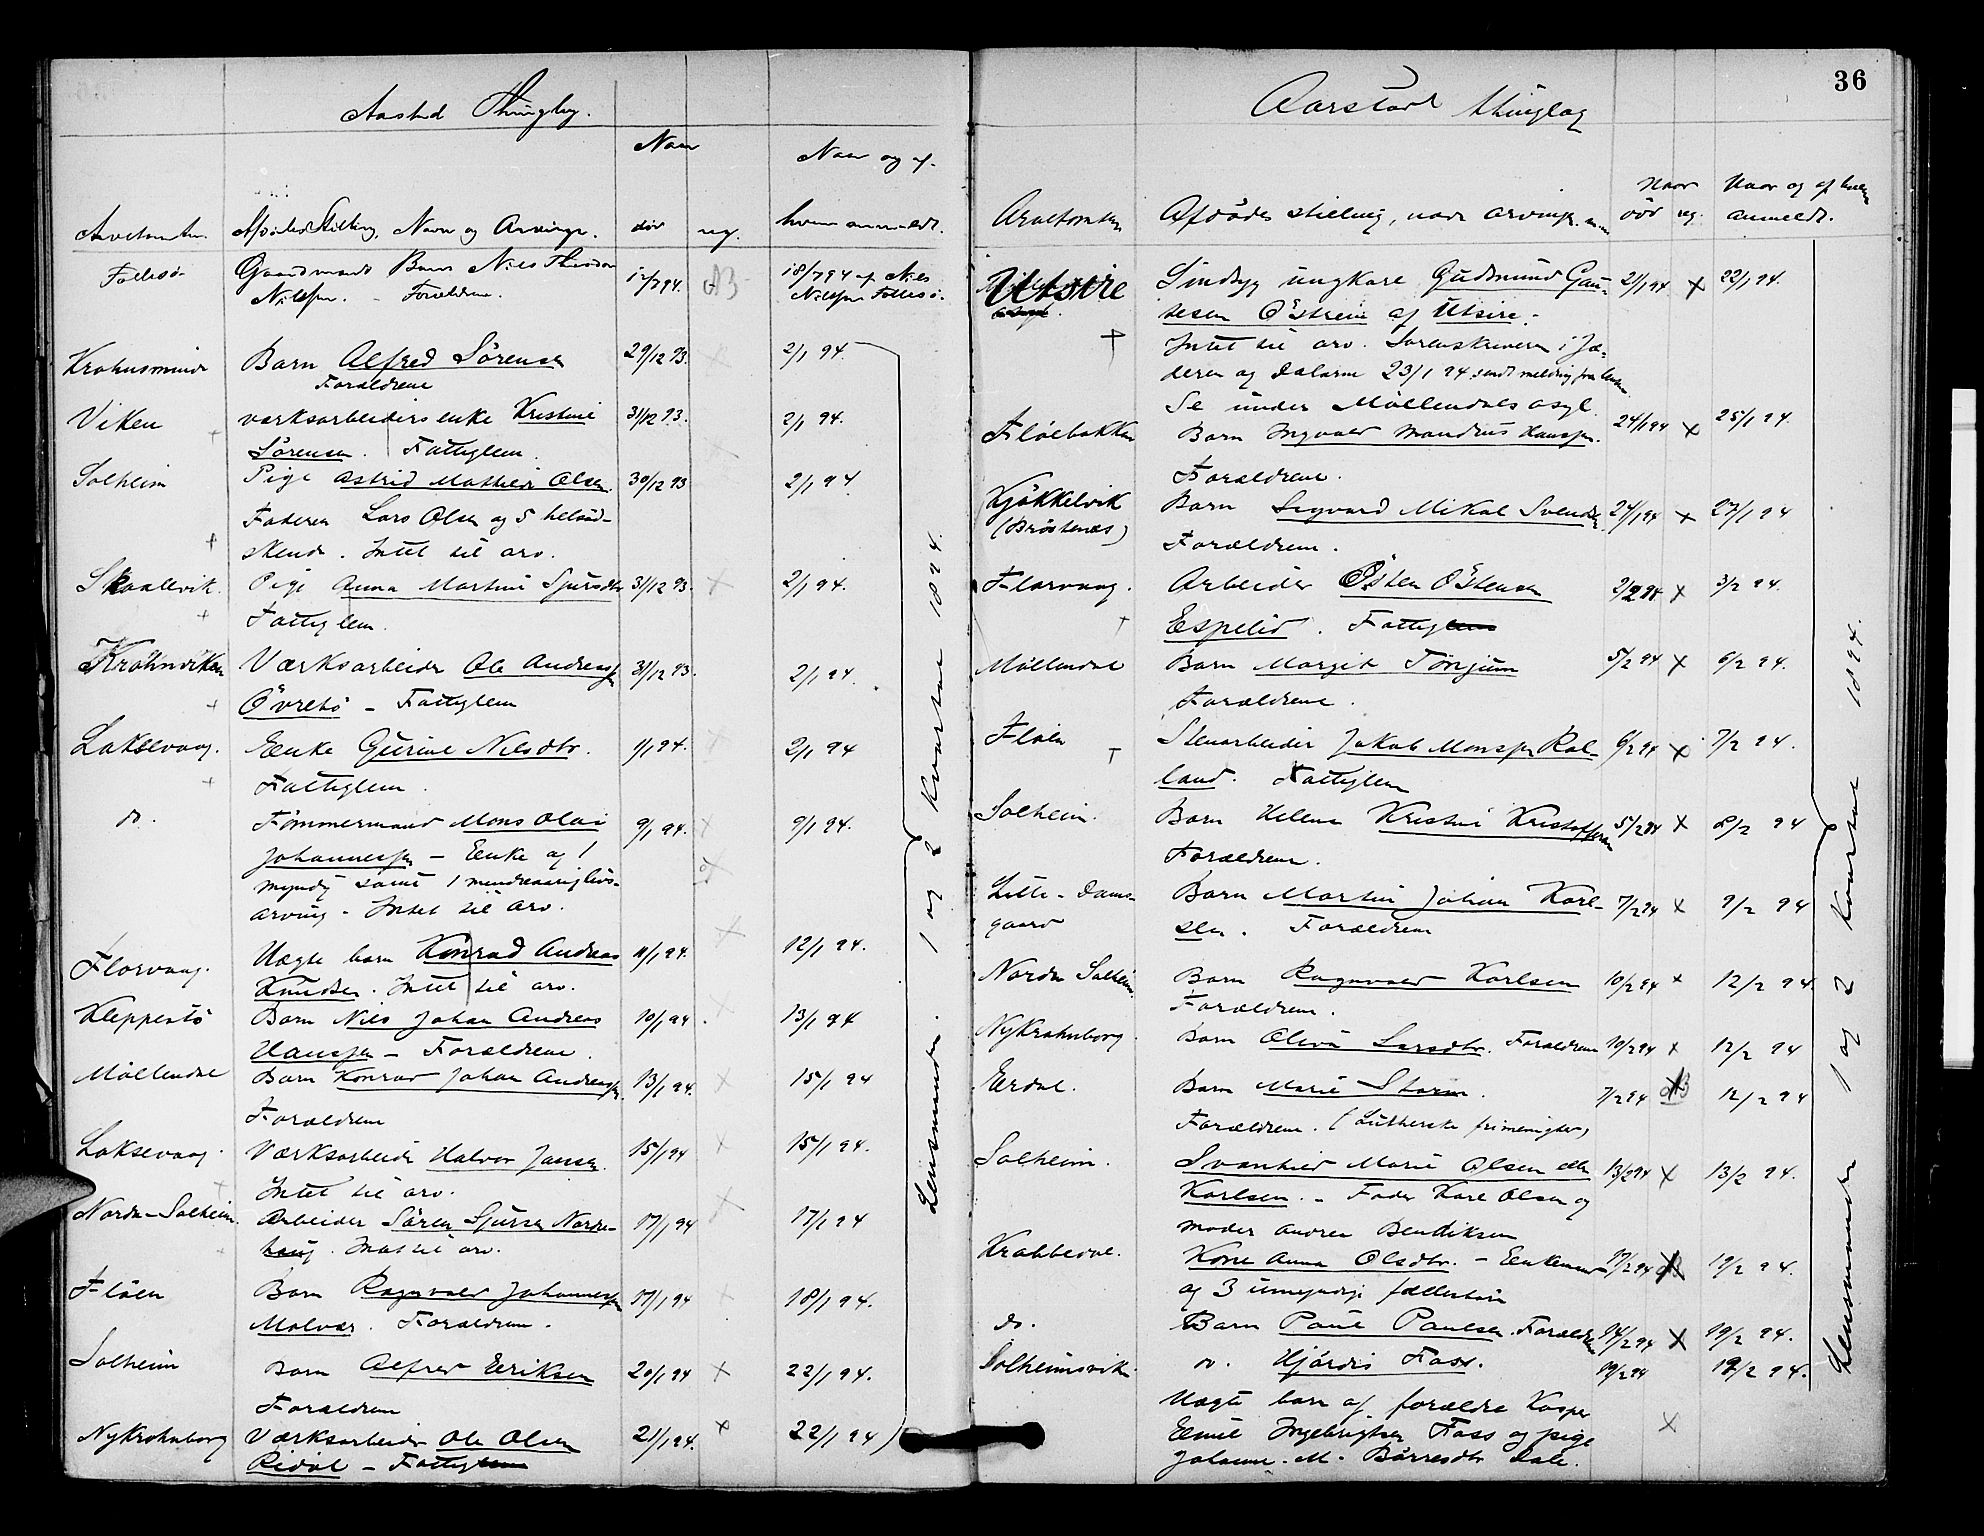 36
Aastad Thinglag.
Naar
Naar og af
Arvetomten
Afdødes Stilling, Navn og Arvinger.
død
reg.
hvem anmeldt.
Follesø
Gaardmands Barn Nils Theodor
12/7 94.
AB
18/7 94 af Nils
Nilssen. - Forældrene.
Nilssen Follesø.
Krohnsminde
Barn Alfred Sörensen
29/12 93.
×
2/1 94.
Forældrene
Viken
værksarbeiders enke Kristine
31/12 93.
2/1 94.
Sörensen. Fattiglem.
×
Solheim
Pige Astrid Mathilde Olsen.
30/12 93
2/1 94.
Faderen Lars Olsen og 5 helsöd-
skende. Intet til arv.
Skaalevik.
Pige Anna Martine Sjursdtr
31/12 93.
×
2/1 94.
Fattiglem.
Krohnviken
Værksarbeider Ole Andreas
31/12 93.
2/1 94.
Övretsö - Fattiglem
Laksevaag.
Enke Gurine Nilsdtr.
1/1 94.
×
2/1 94
Fattiglem.
do.
Tömmermand Mons Olai
9/1 94.
×
9/1 94.
Johannessen - Enke og 1
myndig samt 1 mindreaarig livs-
arving - Intet til arv.
Florvaag.
Uægte barn Konrad Andreas
11/1 94.
×
12/1 94.
Knudsen. Intet til arv.
Kleppestö
Barn Nils Johan Andreas
10/1 94.
×
13/1 94
Hanssen - Forældrene.
Möllendal
Barn Konrad Johan Andreassen
13/1 94.
×
15/1 94
Forældrene
Laksevaag.
Værksarbeider Halvor Jansen.
15/1 94
×
15/1 94.
Intet til arv.
Nordre-Solheim.
Arbeider Sören Sjursen Nordre-
17/1 94
×
17/1 94
haug. Intet til arv.
Flöen
Barn Ragnvald Johannessen
17/1 94
×
18/1 94.
Malvær. Forældrene.
Solheim
Barn Alfred Eriksen
20/1 94
×
22/1 94.
Forældrene
NyKrohnborg
Værksarbeider Ole Olsen
21/1 94.
×
22/1 94
Redal - Fattiglem
Lensmanden. 1 og 2 Kvartal 1894.
Aarstad thinglag
Naar
Naar og af hvem
Arvetomten
Afdødes stilling, navn arvinger m.m
död
reg.
anmeldt.
Utsire
Sindsyg ungkare Gudmund Gau-
21/1 94
×
22/1 94.
tesen Östrem af Utsire.
Intet til arv. Sorenskriveren i Jæ-
deren og Dalarne 23/1 94 sendt melding fra lensm
Se under Möllendals asyl.
Flöebakken
Barn Ingvald Mandrus Hanssen.
24/1 94
×
25/1 94.
Forældrene.
Kjökkelvik
Barn Sigvard Mikal Svendsen
24/1 94
×
27/1 94
(Bröstenes)
Forældrene.
Florvaag.
Arbeider Östen Östensen
2/2 94
×
3/2 94.
Espelid. Fattiglem
Möllendal
Barn Margit Tönjum
5/2 94
×
6/2 94.
Forældrene.
Flöen
Stenarbeider Jakob Monssen Rol-
6/2 94
×
7/2 94.
land. Fattiglem
Solheim.
Barn Helene Kristine Kristoffersen
5/2 94
×
8/2 94
Forældrene.
Lille-Dams-
Barn Martin Johan Karl-
7/2 94
×
9/2 94
gaard
sen. Forældrene
Nordre Solheim.
Barn Ragnvald Karlsen
10/2 94
×
12/2 94.
Forældrene.
NyKrohnborg.
Barn Oliva Larsdtr. Forældrene
10/2 94
×
12/2 94
Erdal.
Barn Marie Storm.
7/2 94
AB
12/2 94
Forældrene. (Lutherske frimenighed)
Solheim.
Svanhild Marie Olsen eller
13/2 94
×
13/2 94.
Karlsen. - Fader Karl Olsen og
moder Andrea Bendiksen
Krabbedal.
Kone Anna Olsdtr. - Enkemand
17/2 94
×
19/2 94.
og 3 umyndige fællesbörn
do.
Barn Paul Paulsen. Forældrene
14/2 94
×
19/2 94.
Solheimsvik.
do. Hjördis Fass.
19/2 94
19/2 94.
Uægte barn af forældre Kasper
Emil Ingebrigtsen Fass og pige
×
Johanne. M. Börresdtr Dale.
Lensmanden 1 og 2 Kvartal 1894.